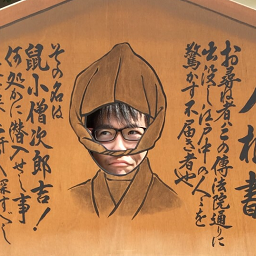 人相書
お尋ね者、この傳法院通りに
出没し、江戸中の人々を
驚かす不届き者也
その名は
鼠小僧次郎吉！
何処かに潜入せし事